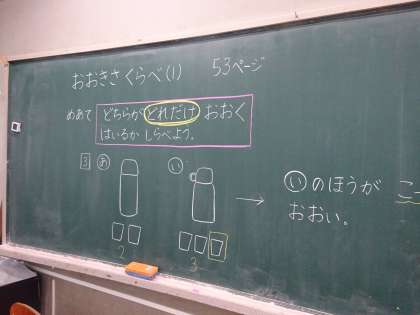 おおきさくらべ(1)　53ページ
めあて どちらが どれだけ おおく
はいるか しらべよう。
3 あ い
→ いのほうが
おおい。
2 3